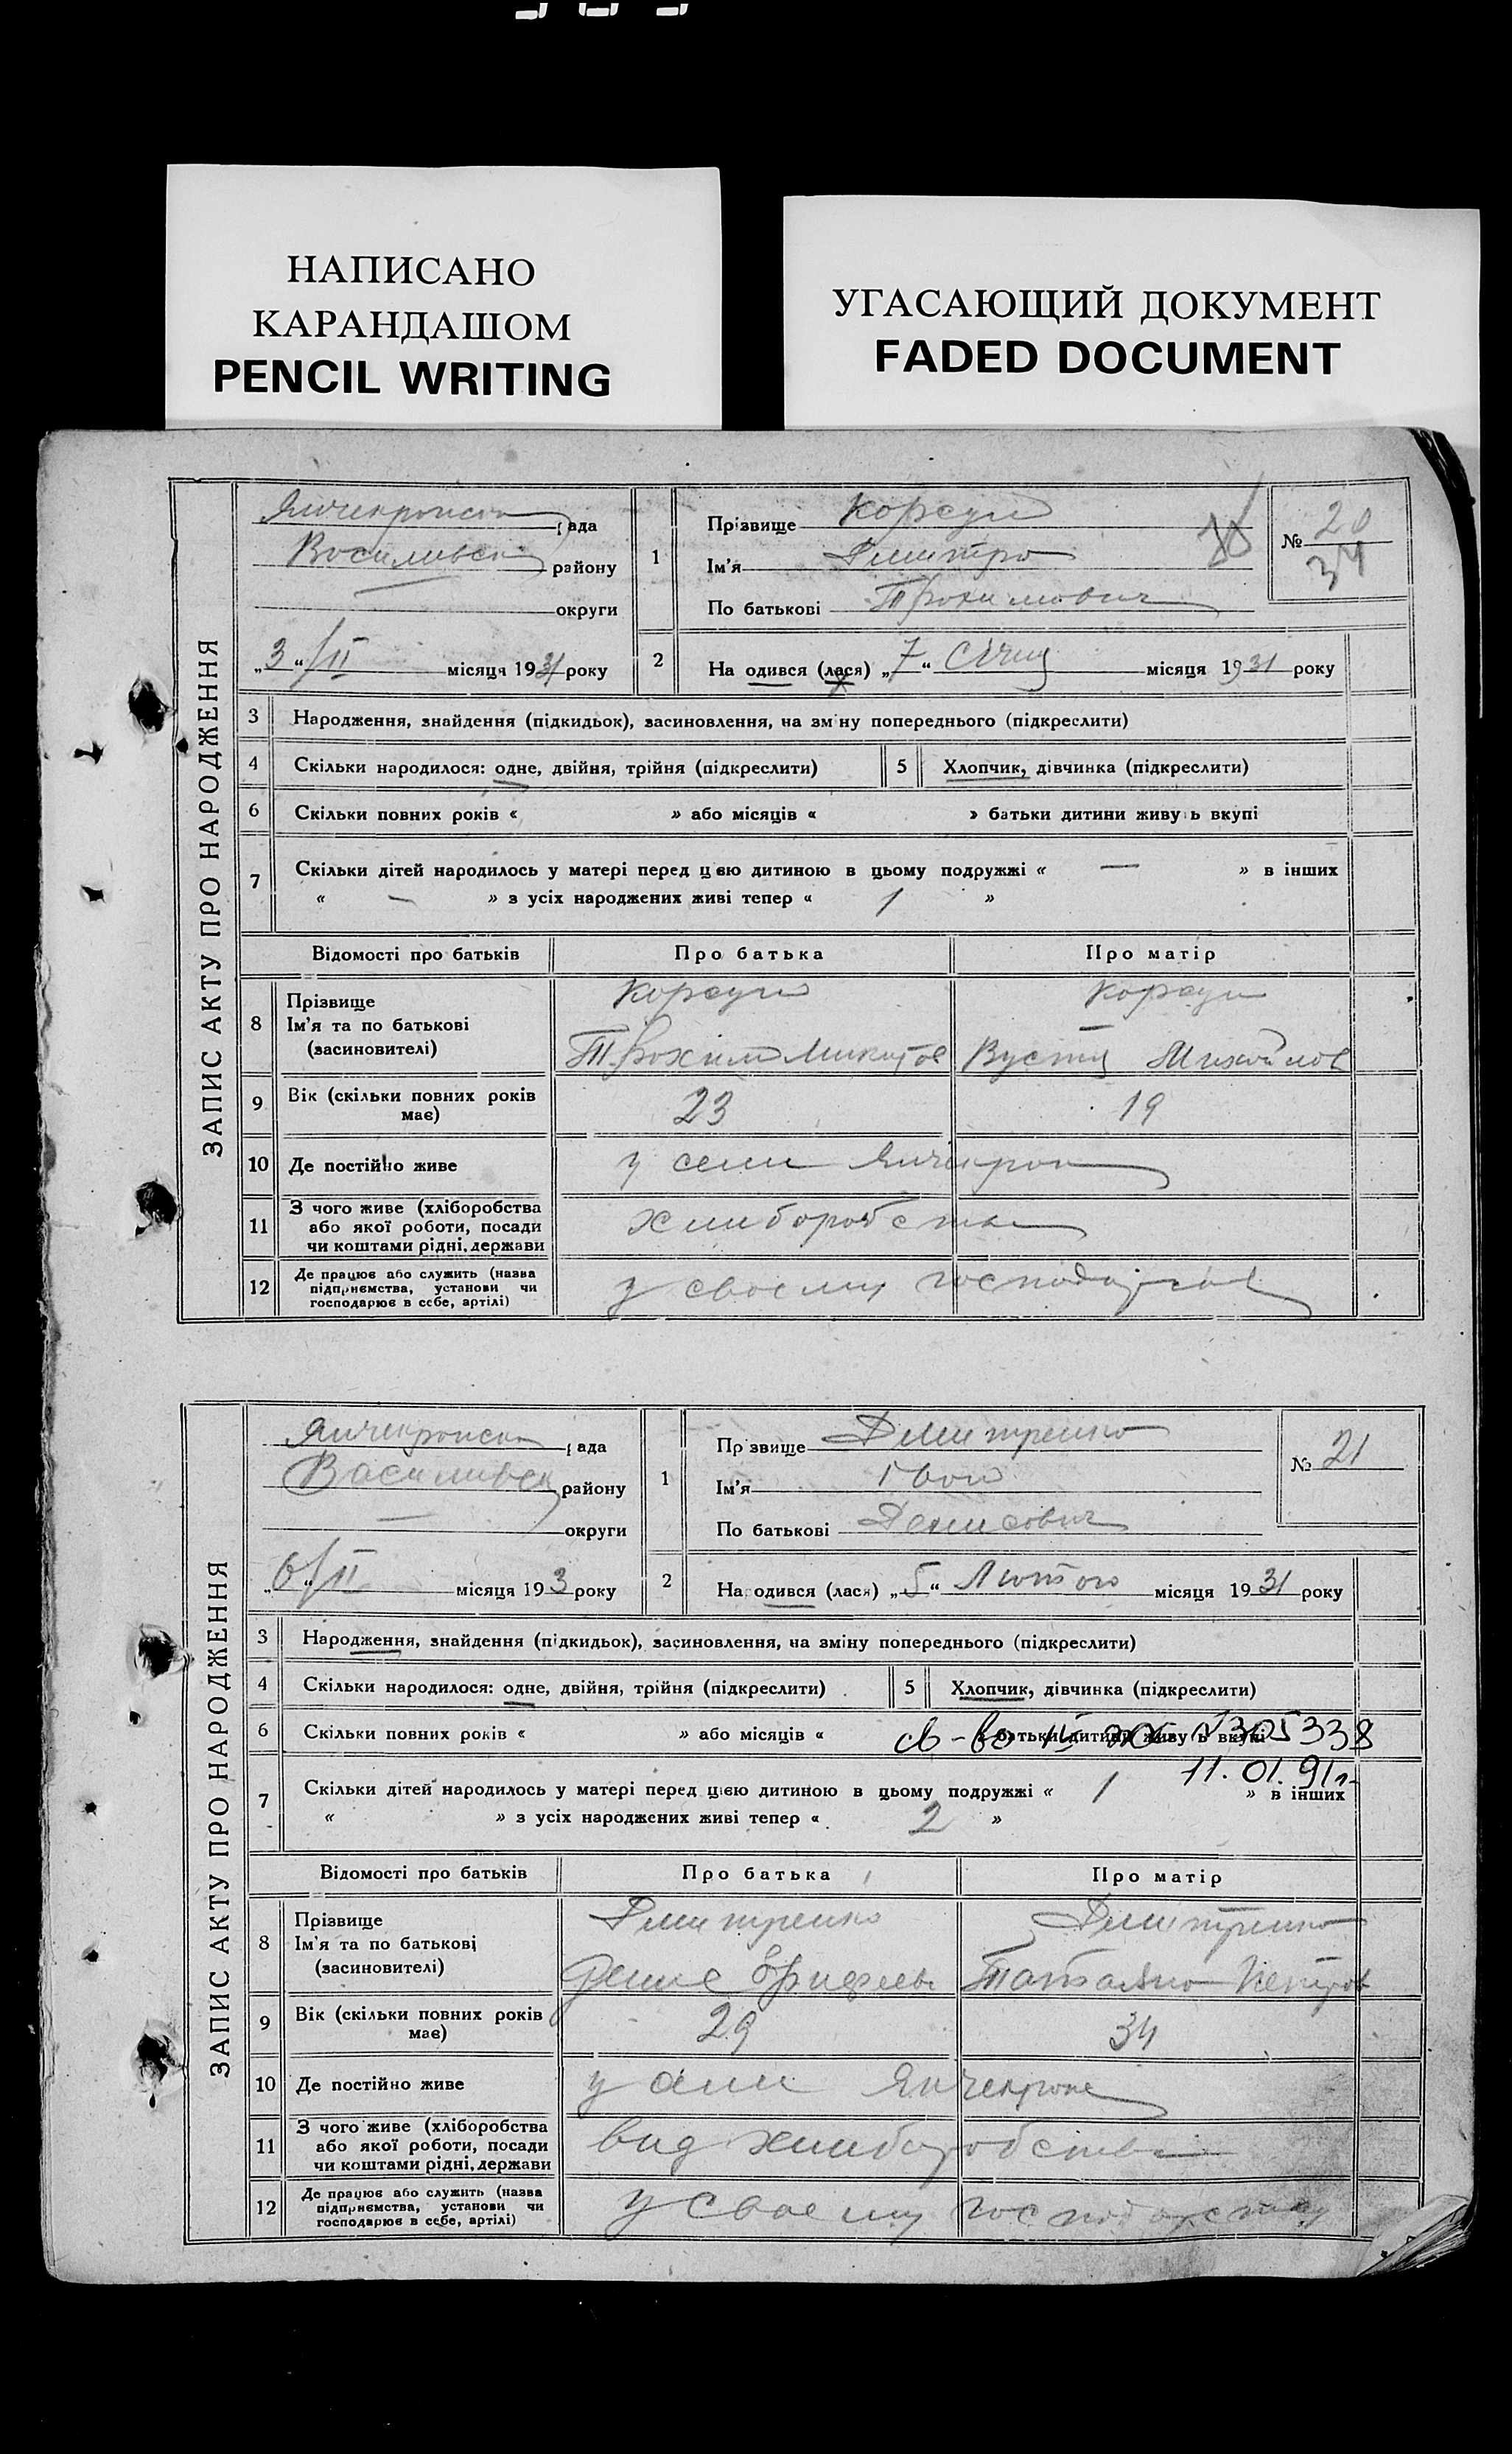 НАПИСАНО
КАРАНДАШОМ
PENCIL WRITING
УГАСАЮЩИЙ ДОКУМЕНТ
FADED DOCUMENT
ЗАПИС АКТУ ПРО НАРОДЖЕННЯ
Янчекрокска рада
Василивск району
округи
„3“/II місяця 1931 року
1
Прізвище Корсун
Ім'я Дмитро
По батькові Трохимович
№ 20
34
2
На одився (лася) „7“ Січня місяця 1931 року
3 Народження, знайдення (підкидьок), засиновлення, на зміну попереднього (підкреслити)
4 Скільки народилося: одне, двійня, трійня (підкреслити) 5 Хлопчик, дівчинка (підкреслити)
6 Скільки повних років « » або місяців « » батьки дитини живу ь вкупі
7 Скільки дітей народилось у матері перед цією дитиною в цьому подружжі « — » в інших
« — » з усіх народжених живі тепер « 1 »
Відомості про батьків Про батька Про матір
8 Прізвище Корсун Корсун
Ім'я та по батькові
(засиновителі) Трохим Микитов Вустя Михайлов
9 Вік (скільки повних років має) 23 19
10 Де постійно живе у сели Янчикрак
11 З чого живе (хліборобства
або якої роботи, посади хлиборобства
чи коштами рідні, держави
12 Де працює або служить (назва
підприємства, установи чи у своему господарстві
господарює в себе, артілі)
ЗАПИС АКТУ ПРО НАРОДЖЕННЯ
Янчекрокска рада
Василивск району
— округи
„6“/II місяця 193 року
1
Прізвище Дмитренко
Ім'я Іван
По батькові Денисович
№ 21
2
Народився (лася) „5“ Лютого місяця 1931 року
3 Народження, знайдення (підкидьок), засиновлення, на зміну попереднього (підкреслити)
4 Скільки народилося: одне, двійня, трійня (підкреслити) 5 Хлопчик, дівчинка (підкреслити)
6 Скільки повних років « » або місяців « » батьки дитини живу ь вкупі
св-во 305338
11.01.91г.
7 Скільки дітей народилось у матері перед цією дитиною в цьому подружжі « 1 » в інших
« » з усіх народжених живі тепер « 2 »
Відомості про батьків Про батька Про матір
8 Прізвище Дмитренко Дмитренко
Ім'я та по батькові
(засиновителі) Денис Татьяна Петров
9 Вік (скільки повних років має) 29 34
10 Де постійно живе у сели Янчекраке
11 З чого живе (хліборобства
або якої роботи, посади вид хлиборобства
чи коштами рідні, держави
12 Де працює або служить (назва
підприємства, установи чи у своему господарстви
господарює в себе, артілі)